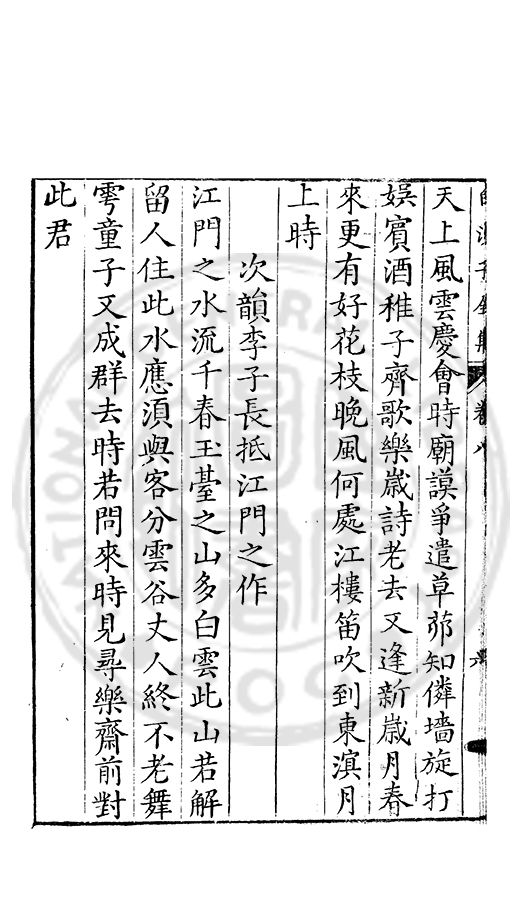 白沙子全集 卷八 六
天上風雲慶會時廟謨爭遣草茆知儯墻旋打
娯賓酒稚子齊歌樂嵗詩老去又逢新嵗月春
來更有好花枝晚風何處江樓笛吹到東溟月
上時
次韻李子長抵江門之作
江門之水流千春玉臺之山多白雲此山若解
留人住此水應須與客分雲谷丈人終不老舞
雩童子又成群去時若問來時見尋樂齋前對
此君